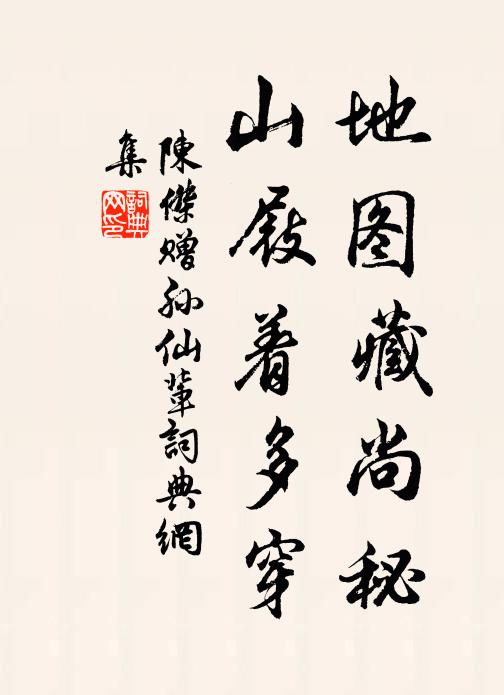 地图藏尚秘
山屐着多穿
陳傑贈孙仙輩詞典網
集
詞典
网印